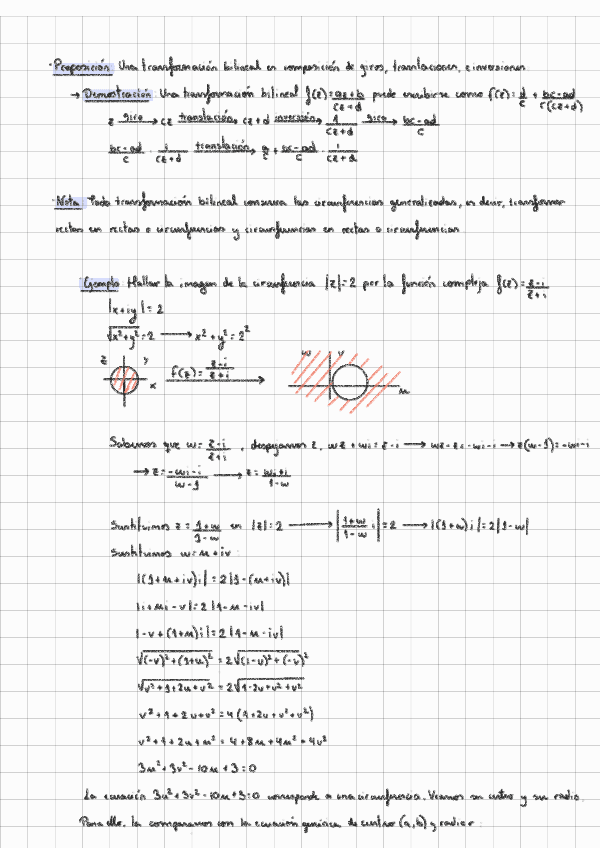 · Proposición Una transformación bilineal es composición de giros, translaciones, e inversiones
→ Demostración Una transformación bilineal f(z)=az+b/cz+d puede escribirse como f(z)=d/c + bc-ad/c(cz+d)
z giro→ cz translación→ cz+d inversión→ 1/cz+d giro→ bc-ad/c
bc-ad/c · 1/cz+d translación→ a/c + bc-ad/c · 1/cz+d
· Nota Toda transformación bilineal conserva las circunferencias generalizadas, es decir, transforma
rectas en rectas o circunferencias y circunferencias en rectas o circunferencias
Ejemplo Hallar la imagen de la circunferencia |z|=2 por la función compleja f(z)=z-i/z+i
|x+iy|=2
√x²+y²=2 → x²+y²=2²
z y x f(z)=z-i/z+i w v u
Sabemos que w=z-i/z+i, despejamos z, wz+wi=z-i → wz-z=-wi-i → z(w-1)=-wi-i
→ z=-wi-i/w-1 → z=wi+i/1-w
Sustituimos z=1+w/1-w en |z|=2 → |1+w/1-w i|=2 → |(1+w)i|=2|1-w|
Sustituimos w=u+iv:
|(1+u+iv)i|=2|1-(u+iv)|
|i+ui-v|=2|1-u-iv|
|-v+(1+u)i|=2|1-u-iv|
√(-v)²+(1+u)²=2√(1-u)²+(-v)²
√v²+1+2u+u²=2√1-2u+u²+v²
v²+1+2u+u²=4(1+2u+u²+v²)
v²+1+2u+u²=4+8u+4u²+4v²
3u²+3v²-10u+3=0
La ecuación 3u²+3v²-10u+3=0 corresponde a una circunferencia. Veamos su centro y su radio.
Para ello, la comparamos con la ecuación genérica de centro (a,b) y radio r: